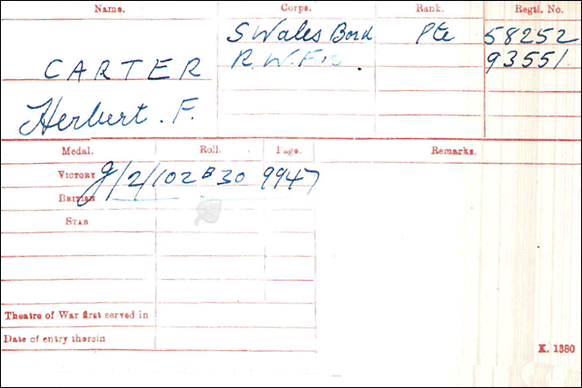 Name. Corps. Rank. Regtl. No.
S Wales Bord Pte 58252
CARTER R. W. Fus 93551
Herbert . F.
Medal. Roll. Page. Remarks.
VICTORY J/2/102 B 30 9947
BRITISH
STAR
Theatre of War first served in
Date of entry therein
K. 1380